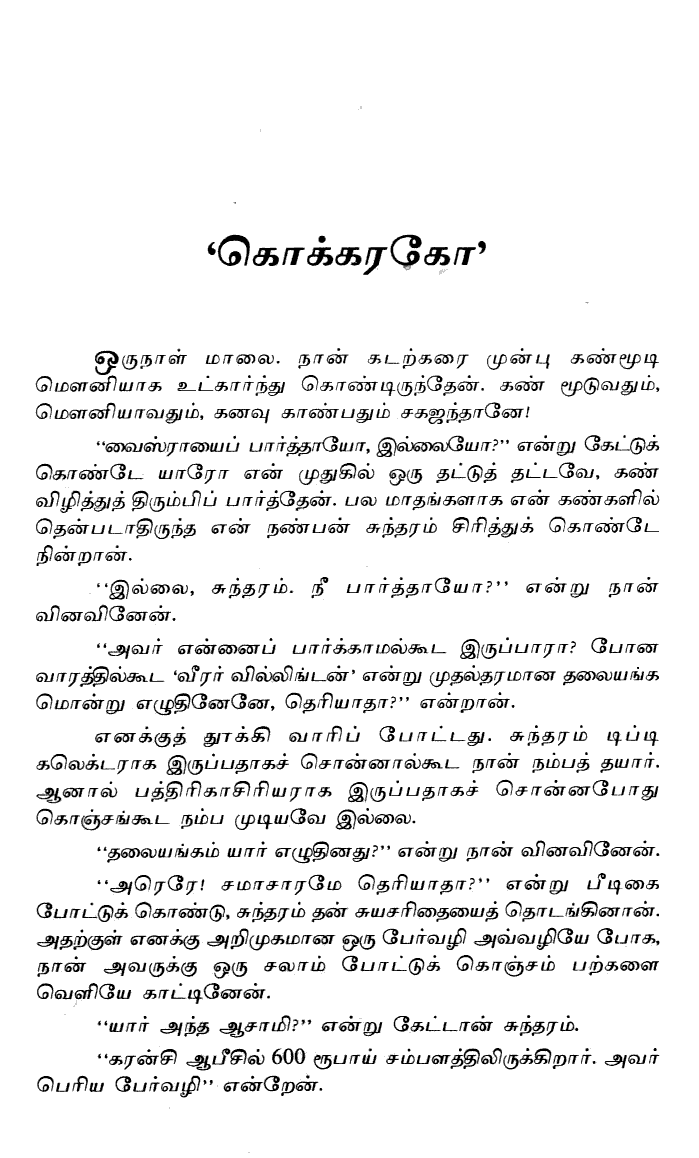 ‘கொக்கரகோ’
ஒருநாள் மாலை. நான் கடற்கரை முன்பு கண்மூடி
மௌனியாக உட்கார்ந்து கொண்டிருந்தேன். கண் மூடுவதும்,
மௌனியாவதும், கனவு காண்பதும் சகஜந்தானே!
“வைஸ்ராயைப் பார்த்தாயோ, இல்லையோ?” என்று கேட்டுக்
கொண்டே யாரோ என் முதுகில் ஒரு தட்டுத் தட்டவே, கண்
விழித்துத் திரும்பிப் பார்த்தேன். பல மாதங்களாக என் கண்களில்
தென்படாதிருந்த என் நண்பன் சுந்தரம் சிரித்துக் கொண்டே
நின்றான்.
“இல்லை, சுந்தரம். நீ பார்த்தாயோ?” என்று நான்
வினவினேன்.
“அவர் என்னைப் பார்க்காமல்கூட இருப்பாரா? போன
வாரத்தில்கூட ‘வீரர் வில்லிங்டன்’ என்று முதல்தரமான தலையங்க
மொன்று எழுதினேனே, தெரியாதா?” என்றான்.
எனக்குத் தூக்கி வாரிப் போட்டது. சுந்தரம் டிப்டி
கலெக்டராக இருப்பதாகச் சொன்னால்கூட நான் நம்பத் தயார்.
ஆனால் பத்திரிகாசிரியராக இருப்பதாகச் சொன்னபோது
கொஞ்சங்கூட நம்ப முடியவே இல்லை.
“தலையங்கம் யார் எழுதினது?” என்று நான் வினவினேன்.
“அரெரே! சமாசாரமே தெரியாதா?” என்று பீடிகை
போட்டுக் கொண்டு, சுந்தரம் தன் சுயசரிதையைத் தொடங்கினான்.
அதற்குள் எனக்கு அறிமுகமான ஒரு பேர்வழி அவ்வழியே போக,
நான் அவருக்கு ஒரு சலாம் போட்டுக் கொஞ்சம் பற்களை
வெளியே காட்டினேன்.
“யார் அந்த ஆசாமி?” என்று கேட்டான் சுந்தரம்.
“கரன்சி ஆபீசில் 600 ரூபாய் சம்பளத்திலிருக்கிறார். அவர்
பெரிய பேர்வழி” என்றேன்.